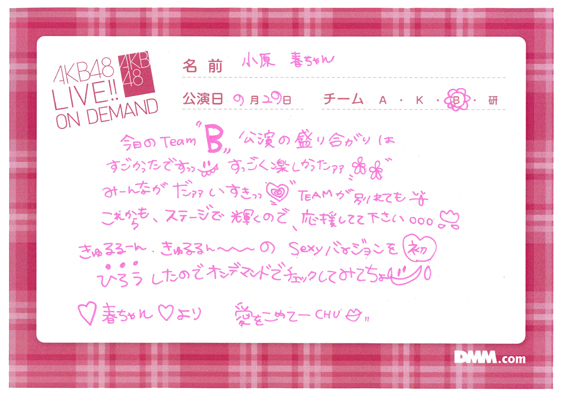 AKB48
LIVE!!
ON DEMAND
AKB
48
名前 小原 春ちゃん
公演日 9月29日 チーム A・K・B・研
今日のTeam"B"公演の盛り合がりは
すごかったですッ すっごく楽しかったァァ
みーんながだァァいすきっ TEAMが別れても
これからも、ステージで輝くので、応援してて下さい○○○
きゅるるーん、きゅるるん〜〜〜の Sexyバージョンを初
ひろうしたのでオンデマンドでチェックしてみてちょ
♡春ちゃん♡より 愛をこめてーCHU
DMM.com